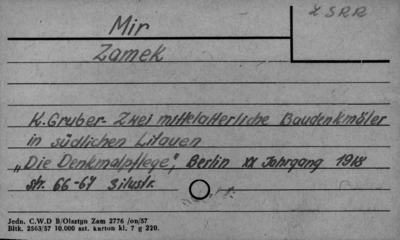 Mir
ZSRR
Zamek
K. Gruber - Zwei mittelalterliche Baudenkmäler
in südlichen Litauen
„Die Denkmalpflege", Berlin XX Jahrgang 1918
str. 66-67 3 ilustr.
Jedn. C.W.D B/Olsztyn Zam 2776 /on/57
Bltk. 2563/57 10.000 szt. karton kl. 7 g 220.